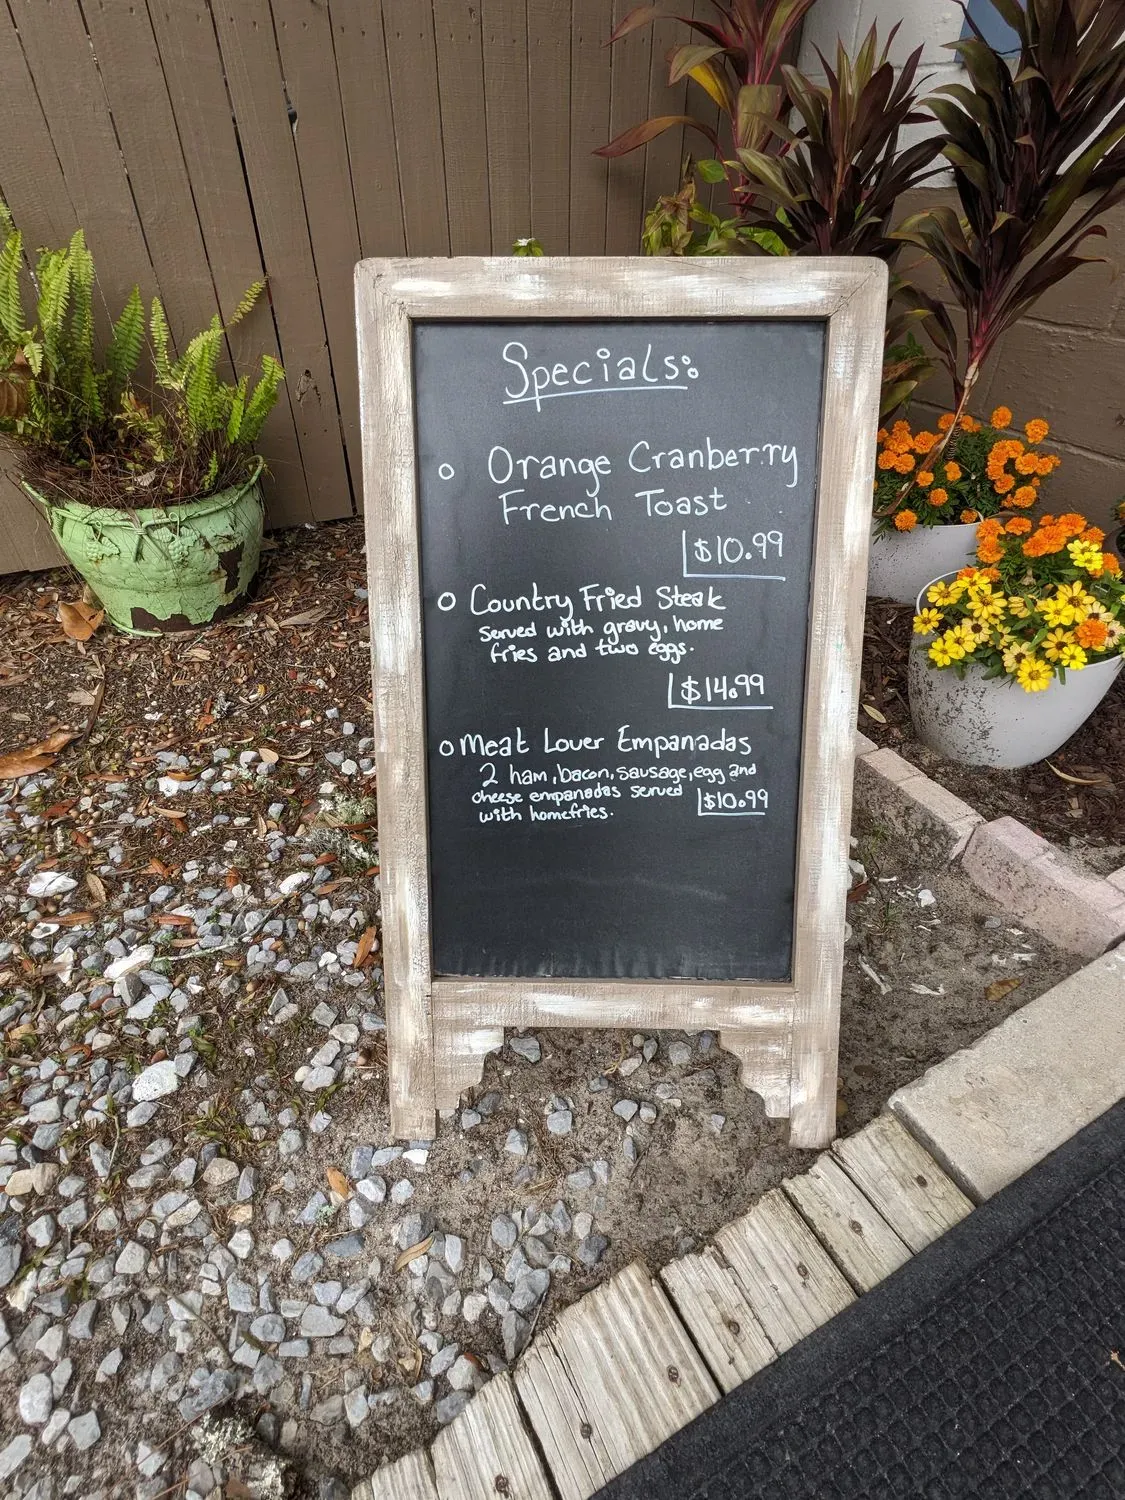 Specials:
o Orange Cranberry
French Toast
$10.99
o Country Fried Steak
served with gravy, home
fries and two eggs.
$14.99
o Meat Lover Empanadas
2 ham, bacon, sausage, egg and
cheese empanadas served
with homefries.
$10.99